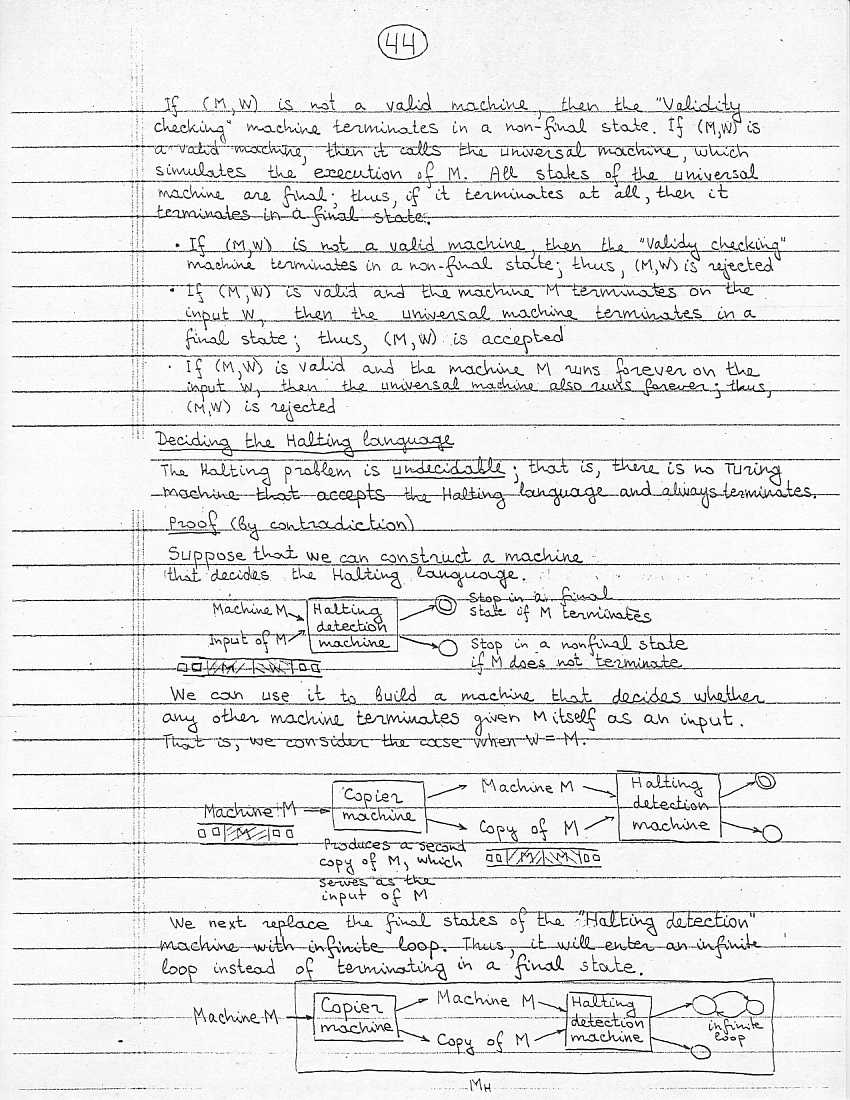 44
If (M,W) is not a valid machine, then the "Validity
checking" machine terminates in a non-final state. If (M,W) is
a valid machine, then it calls the universal machine, which
simulates the execution of M. All states of the universal
machine are final; thus, if it terminates at all, then it
terminates in a final state.
• If (M,W) is not a valid machine, then the "Validy checking"
machine terminates in a non-final state; thus, (M,W) is rejected
• If (M,W) is valid and the machine M terminates on the
input W, then the universal machine terminates in a
final state; thus, (M,W) is accepted
• If (M,W) is valid and the machine M runs forever on the
input W, then the universal machine also runs forever; thus,
(M,W) is rejected
Deciding the Halting language
The Halting problem is undecidable; that is, there is no Turing
machine that accepts the Halting language and always terminates.
Proof (by contradiction)
Suppose that we can construct a machine
that decides the Halting language.
Machine M
Input of M
M W
Halting
detection
machine
Stop in a final
state if M terminates
Stop in a nonfinal state
if M does not terminate
We can use it to build a machine that decides whether
any other machine terminates given M itself as an input.
That is, we consider the case when W = M.
Machine M
M
Copier
machine
Produces a second
copy of M, which
serves as the
input of M
Machine M
Copy of M
M M
Halting
detection
machine
We next replace the final states of the "Halting detection"
machine with infinite loop. Thus, it will enter an infinite
loop instead of terminating in a final state.
Machine M
Copier
machine
Machine M
Copy of M
Halting
detection
machine
infinite
loop
MH